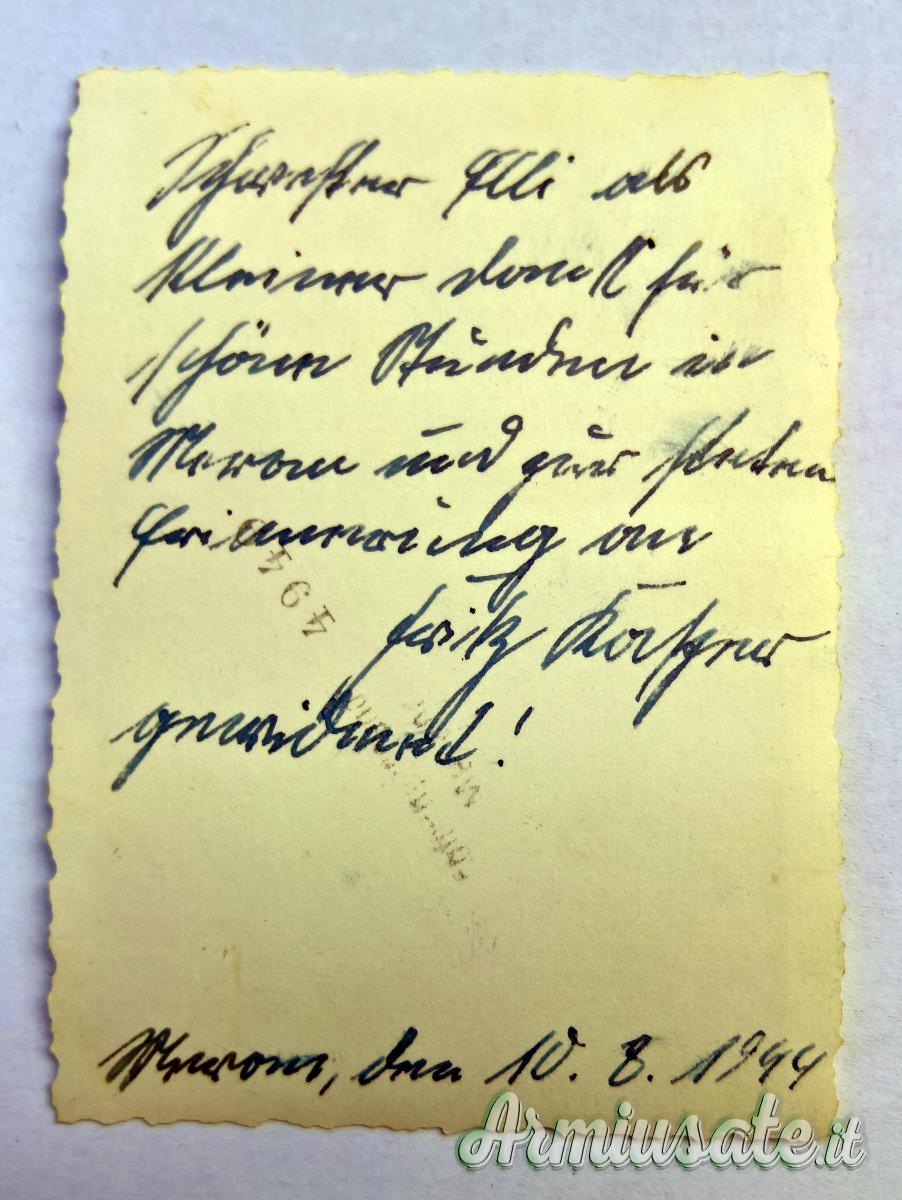 Schwester Elli als
kleiner dank für
schöne Stunden in
Meran und zur steten
Erinnerung an
Fritz Kasper
gewidmet!
494
Meran, den 10. 8. 1944
Armiusate.it